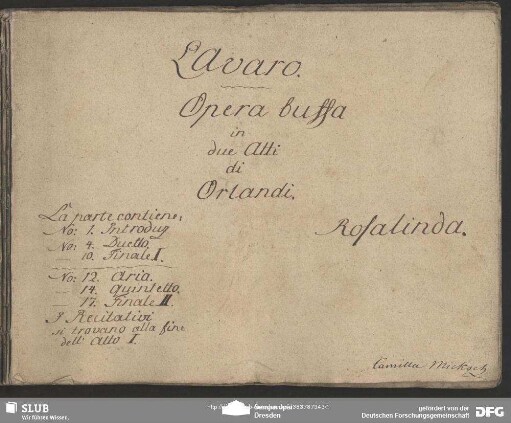 L'Avaro.
Opera buffa
in
due Atti
di
Orlandi.
Rosalinda.
La parte contiene:
No: 1. Introduz
No: 4. Duetto,
— 10. Finale I.
No: 12. Aria.
— 14. Quintetto.
— 17. Finale II.
I Recitativi
si trovano alla fine
dell' Atto I.
Camilla
SLUB
Wir führen Wissen.
Dresden
gefördert von der
Deutschen Forschungsgemeinschaft
DFG